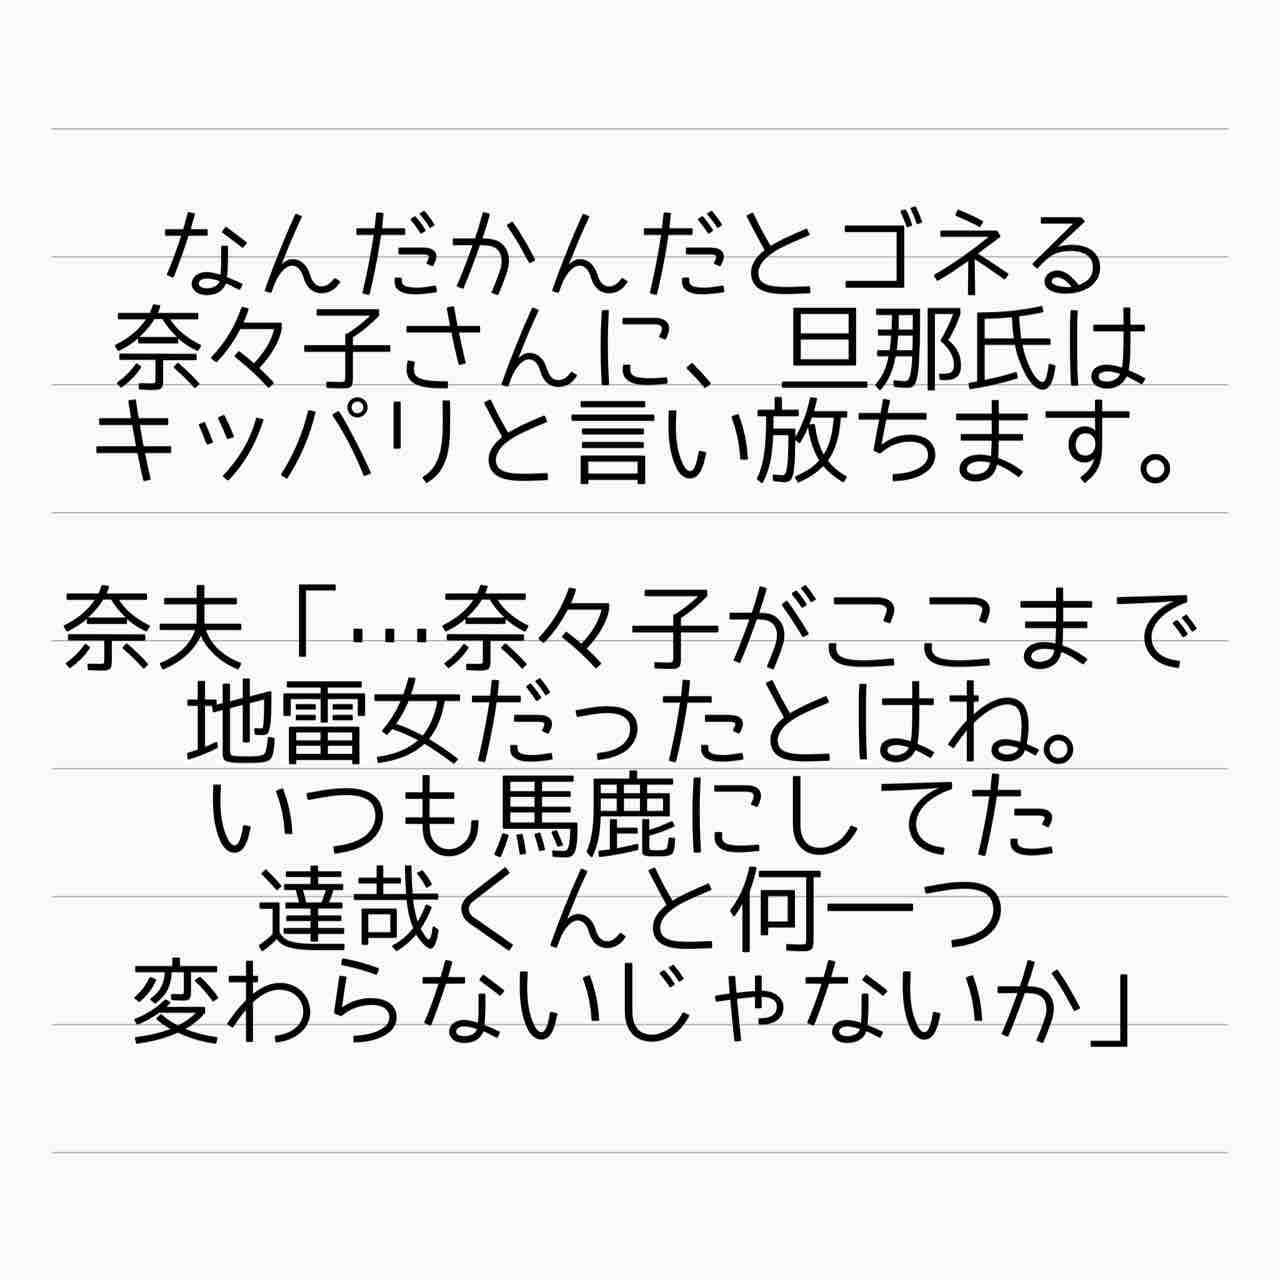 なんだかんだとゴネる
奈々子さんに、旦那氏は
キッパリと言い放ちます。
奈夫「…奈々子がここまで
地雷女だったとはね。
いつも馬鹿にしてた
達哉くんと何一つ
変わらないじゃないか」